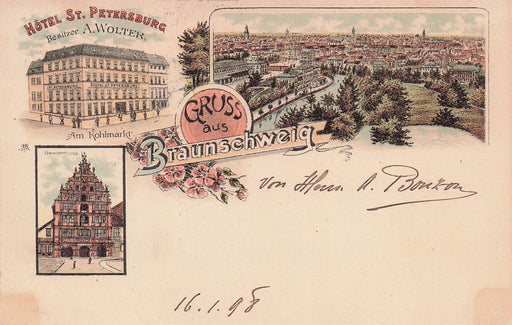 HÔTEL ST. PETERSBURG
Besitzer A. WOLTER.
HÔTEL ST. PETERSBURG
Am Kohlmarkt.
GRUSS
aus
Braunschweig
Gewandhaus
von Herrn A.
16.1.98